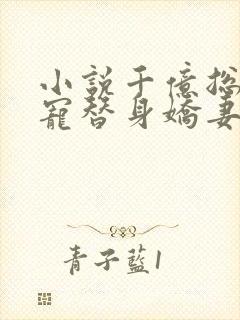 小說千億總
寵替身嬌妻
青子藍1